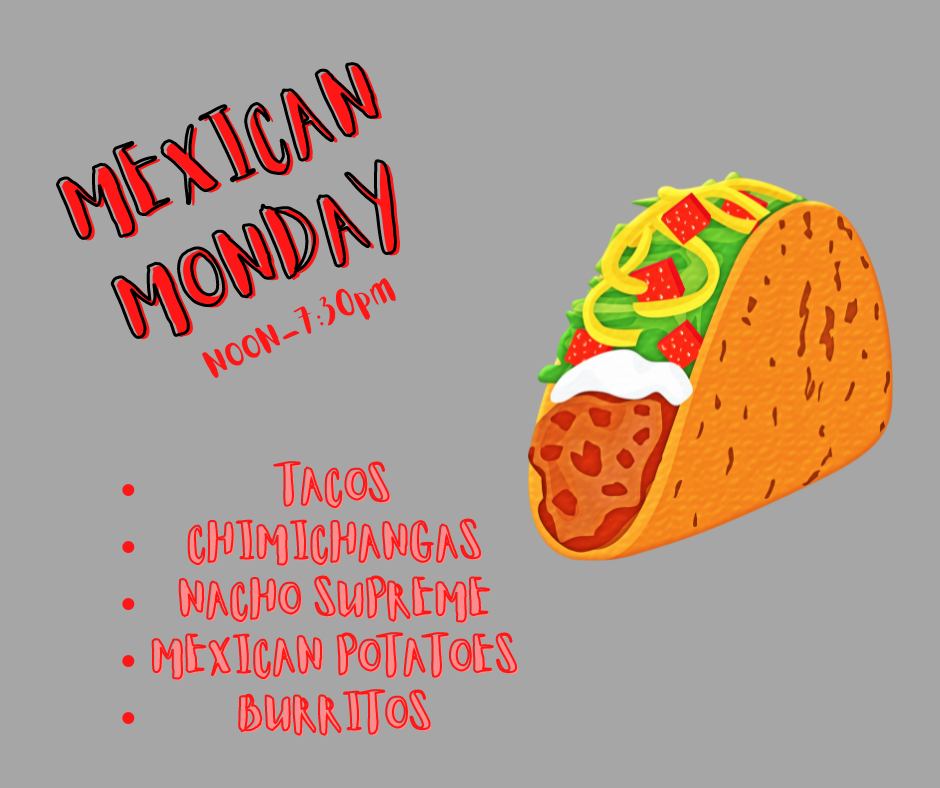 MEXICAN
MONDAY
NOON_7:30pm
• TACOS
• CHIMICHANGAS
• NACHO SUPREME
• MEXICAN POTATOES
• BURRITOS